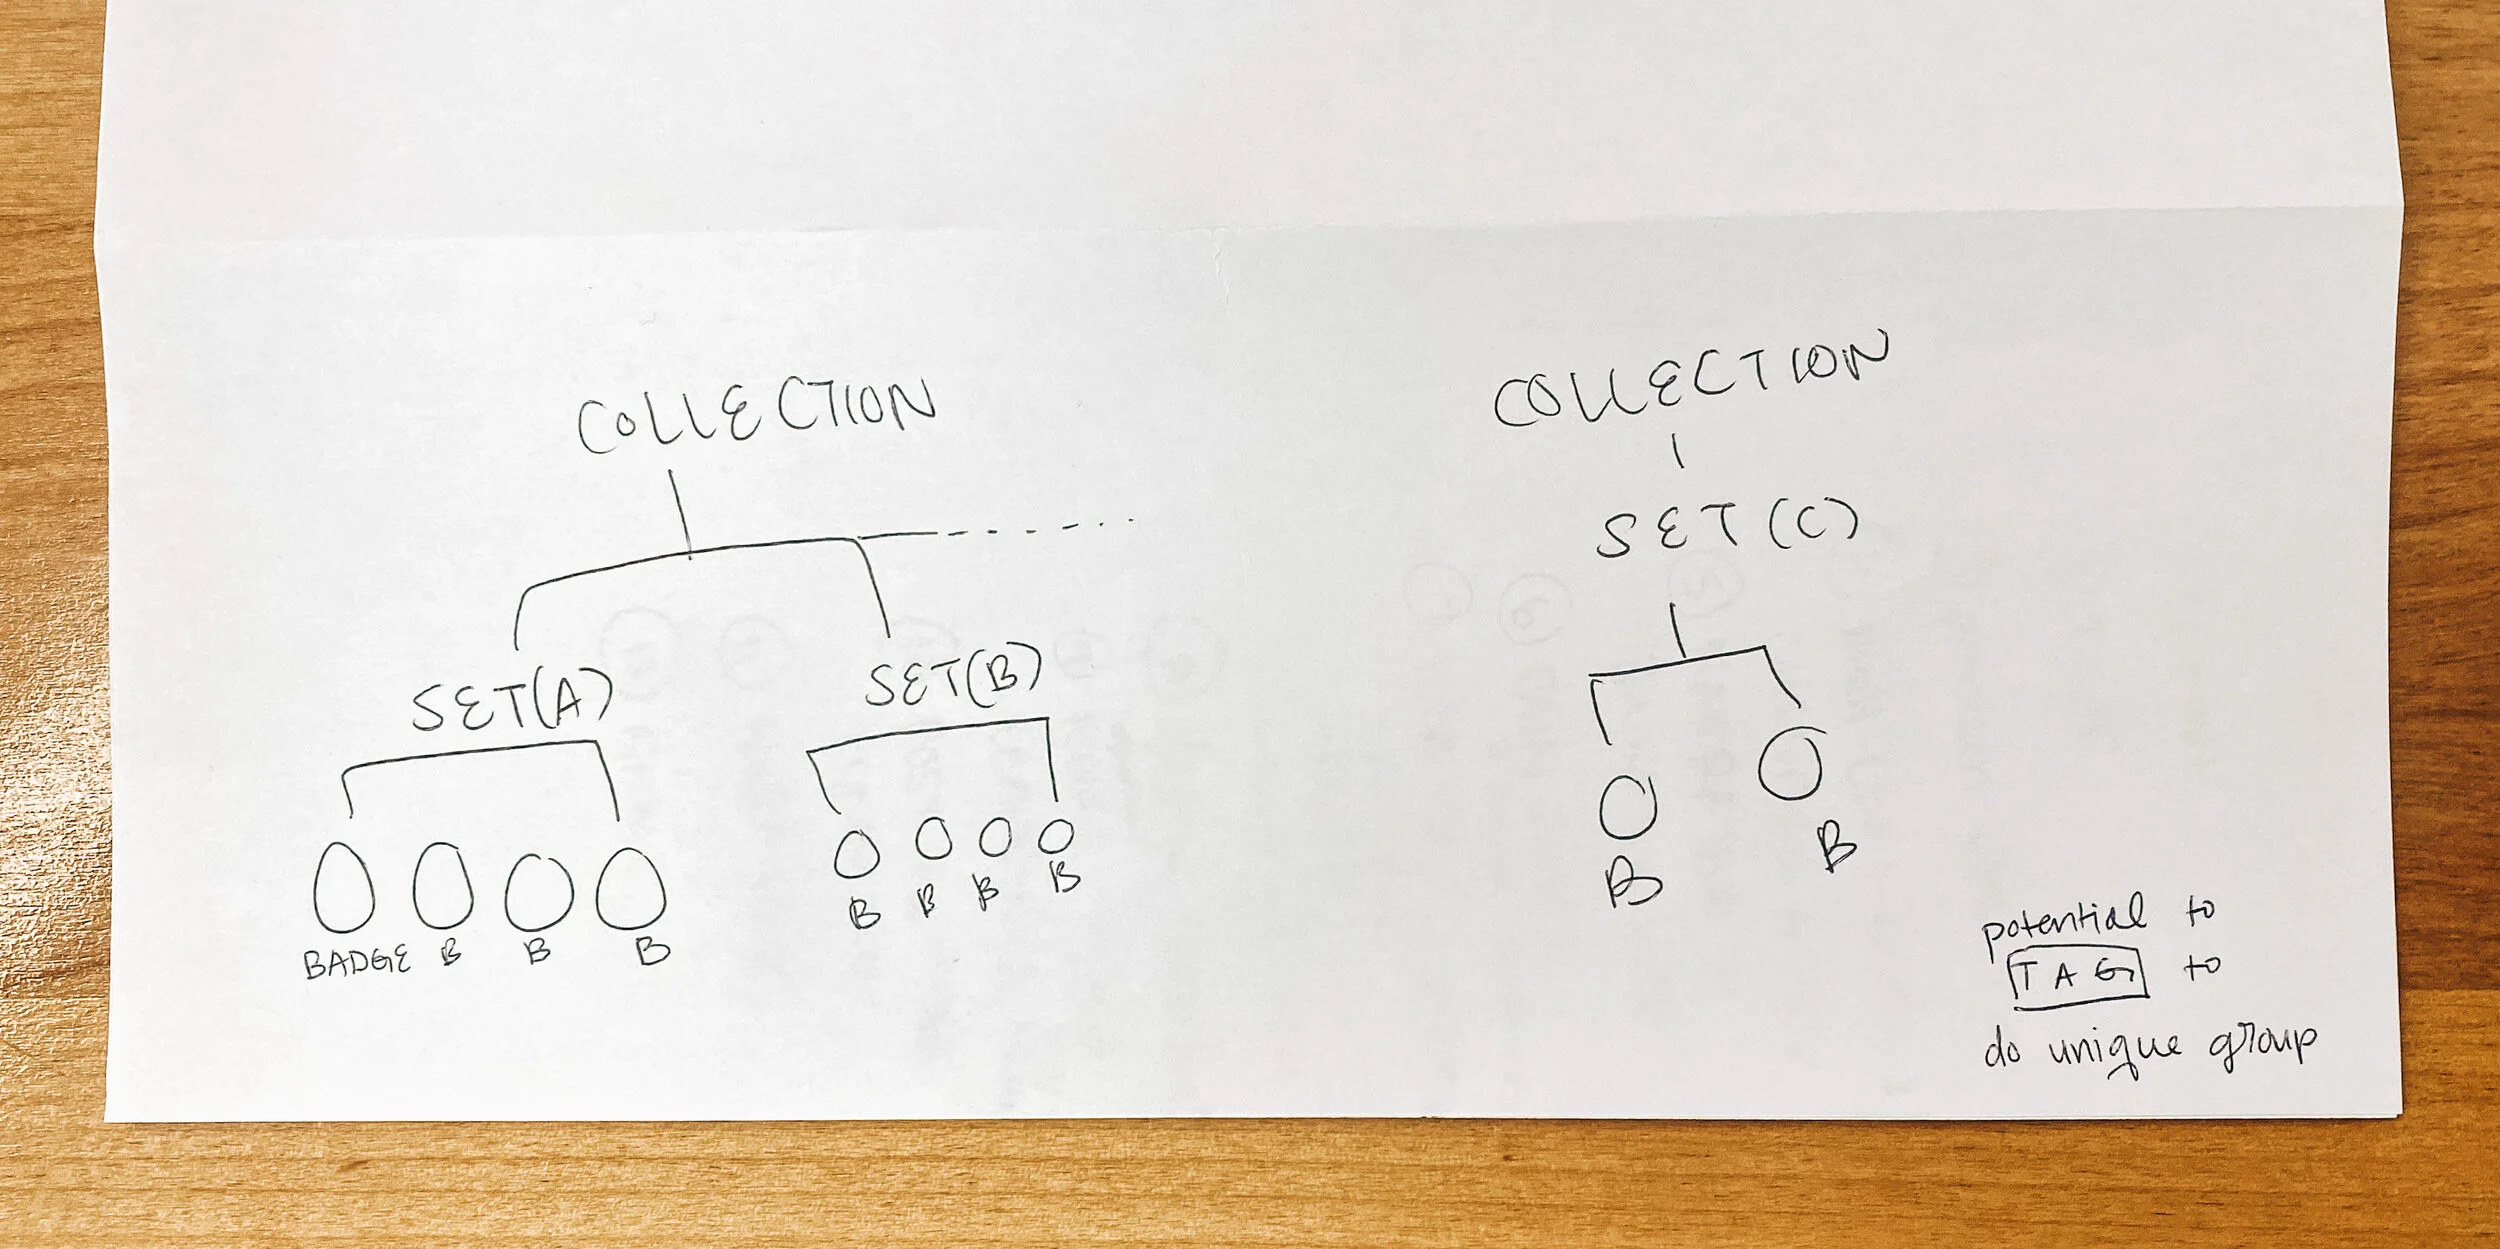 COLLECTION
SET(A)
SET(B)
BADGE B B B
B B B B
COLLECTION
SET(C)
B B
potential to
TAG to
do unique group